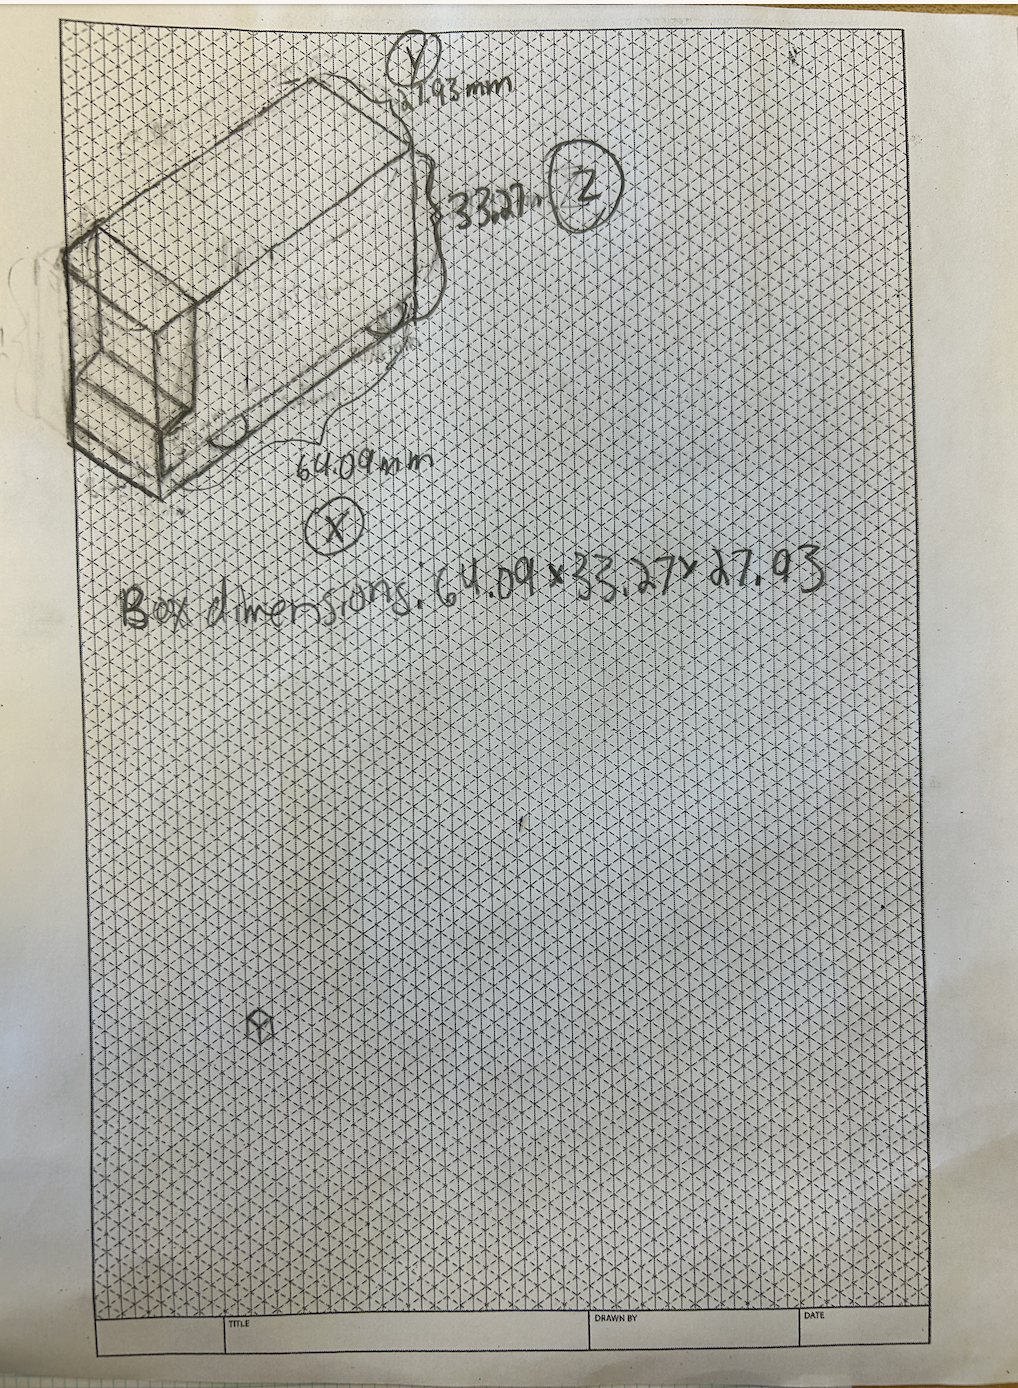 Y
27.93mm
33.27m
Z
64.09mm
X
Box dimensions: 64.09 x 33.27 x 27.93
TITLE
DRAWN BY
DATE